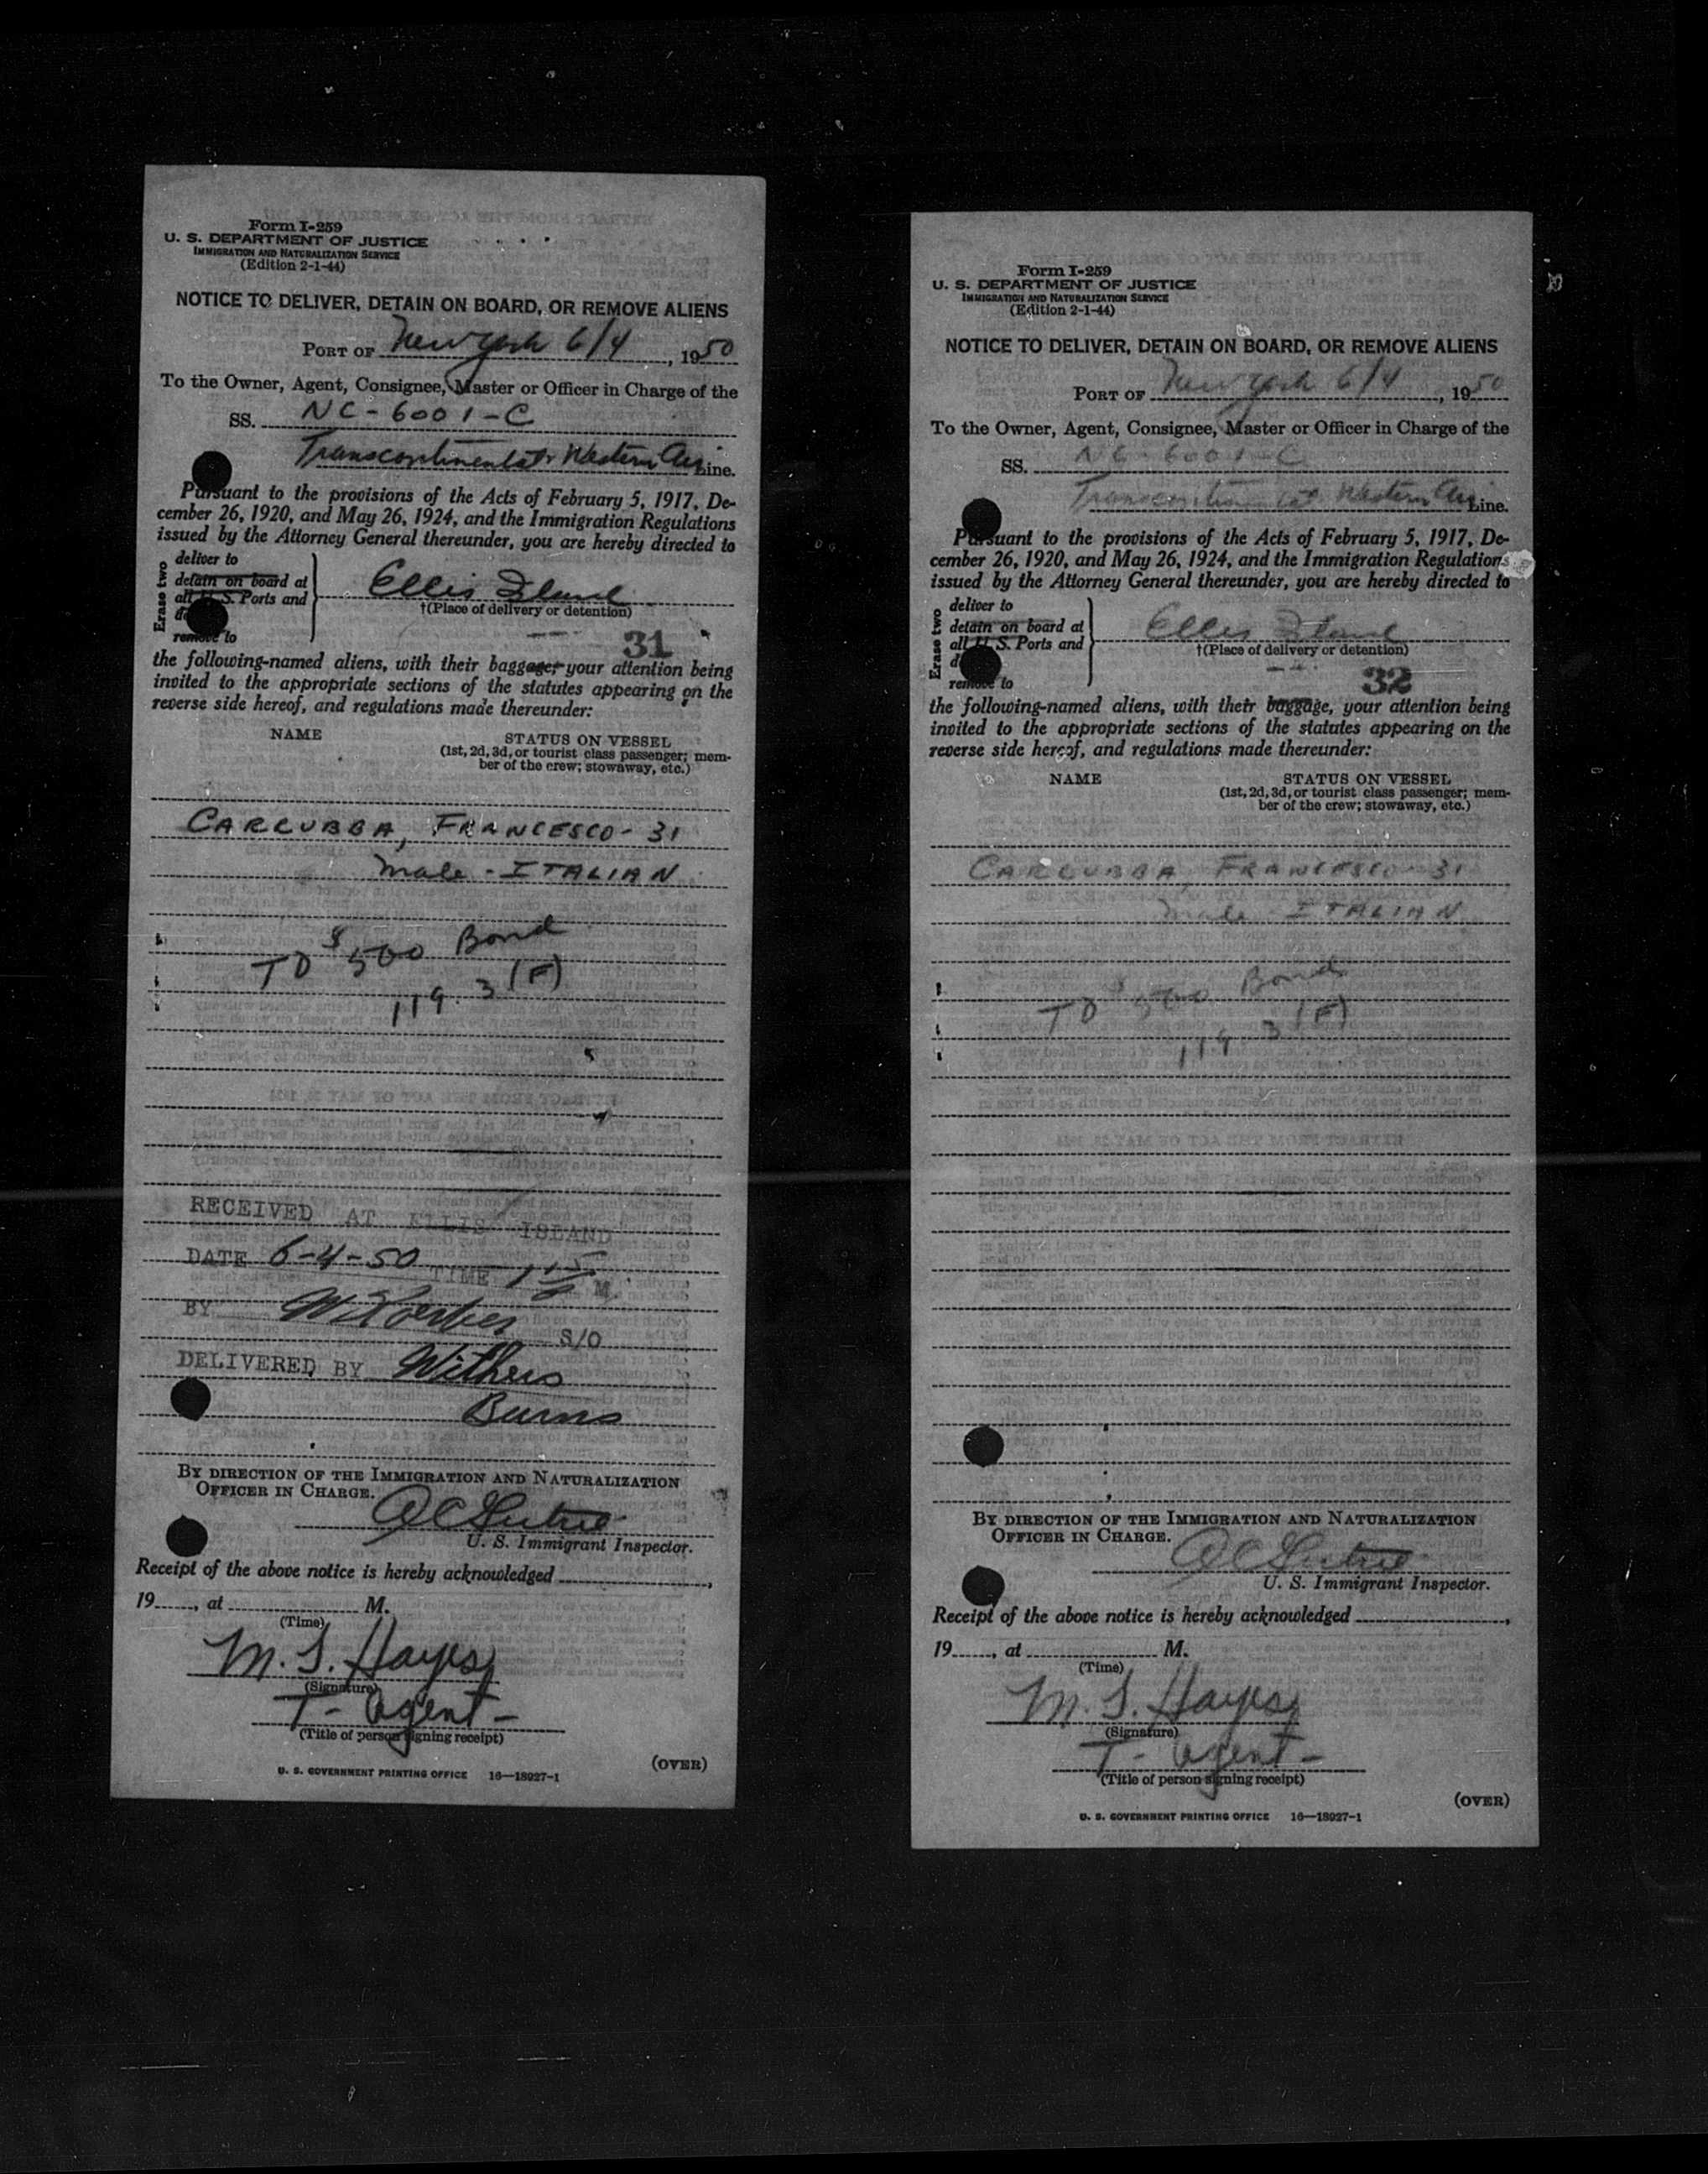 Form I-259
U. S. DEPARTMENT OF JUSTICE
IMMIGRATION AND NATURALIZATION SERVICE
(Edition 2-1-44)
NOTICE TO DELIVER, DETAIN ON BOARD, OR REMOVE ALIENS
PORT OF New York 6/4, 1950
To the Owner, Agent, Consignee, Master or Officer in Charge of the
SS. NC-6001-C
Transcontinental & Western Air Line.
Pursuant to the provisions of the Acts of February 5, 1917, De-
cember 26, 1920, and May 26, 1924, and the Immigration Regulations
issued by the Attorney General thereunder, you are hereby directed to
Erase two
deliver to
detain on board at
all U. S. Ports and
remove to
Ellis Island
†(Place of delivery or detention)
31
the following-named aliens, with their baggage, your attention being
invited to the appropriate sections of the statutes appearing on the
reverse side hereof, and regulations made thereunder:
NAME STATUS ON VESSEL
(1st, 2d, 3d, or tourist class passenger; mem-
ber of the crew; stowaway, etc.)
CARRUBBA, FRANCESCO - 31
Male - ITALIAN
TD $500 Bond
119.3 (F)
RECEIVED AT ELLIS ISLAND
DATE 6-4-50 TIME 1 15 M.
BY S/O
DELIVERED BY Withers
Burns
BY DIRECTION OF THE IMMIGRATION AND NATURALIZATION
OFFICER IN CHARGE.
U. S. Immigrant Inspector.
Receipt of the above notice is hereby acknowledged
19, at M.
(Time)
M. S. Hayes
(Signature)
T- Agent -
(Title of person signing receipt)
(OVER)
U. S. GOVERNMENT PRINTING OFFICE 16—18927-1
Form I-259
U. S. DEPARTMENT OF JUSTICE
IMMIGRATION AND NATURALIZATION SERVICE
(Edition 2-1-44)
NOTICE TO DELIVER, DETAIN ON BOARD, OR REMOVE ALIENS
PORT OF New York 6/4, 1950
To the Owner, Agent, Consignee, Master or Officer in Charge of the
SS. NC-6001-C
Transcontinental & Western Air Line.
Pursuant to the provisions of the Acts of February 5, 1917, De-
cember 26, 1920, and May 26, 1924, and the Immigration Regulations
issued by the Attorney General thereunder, you are hereby directed to
Erase two
deliver to
detain on board at
all U. S. Ports and
remove to
Ellis Island
†(Place of delivery or detention)
32
the following-named aliens, with their baggage, your attention being
invited to the appropriate sections of the statutes appearing on the
reverse side hereof, and regulations made thereunder:
NAME STATUS ON VESSEL
(1st, 2d, 3d, or tourist class passenger; mem-
ber of the crew; stowaway, etc.)
CARRUBBA, FRANCESCO - 31
Male - ITALIAN
TD $500 Bond
119.3 (F)
BY DIRECTION OF THE IMMIGRATION AND NATURALIZATION
OFFICER IN CHARGE.
U. S. Immigrant Inspector.
Receipt of the above notice is hereby acknowledged
19, at M.
(Time)
M. S. Hayes
(Signature)
T- Agent -
(Title of person signing receipt)
(OVER)
U. S. GOVERNMENT PRINTING OFFICE 16—18927-1